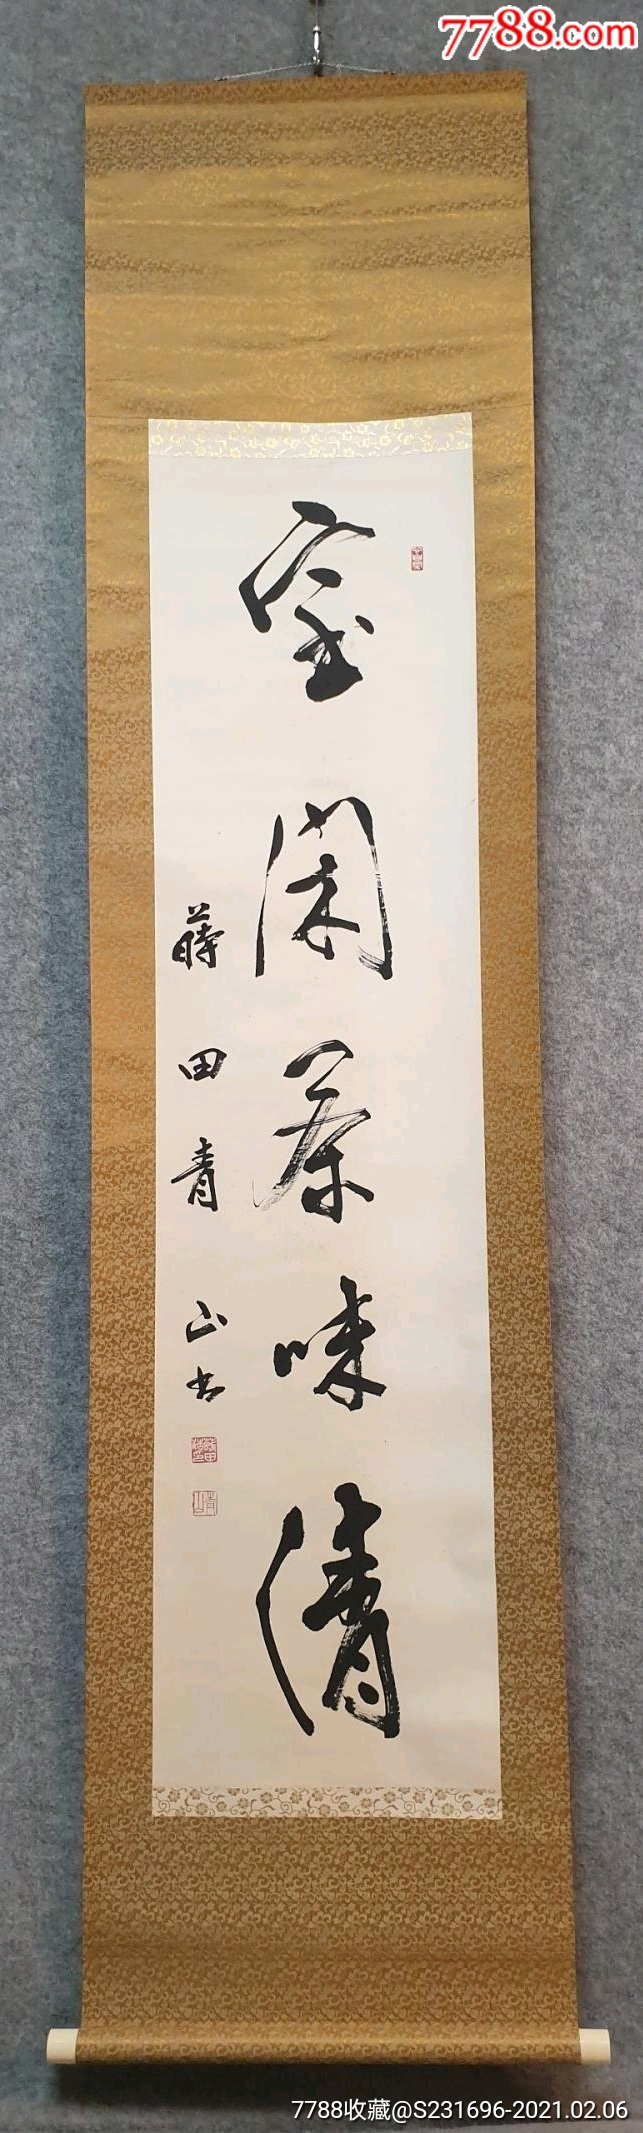 7788.com
室閑茶味清
蒔田青山書
7788收藏@S231696-2021.02.06